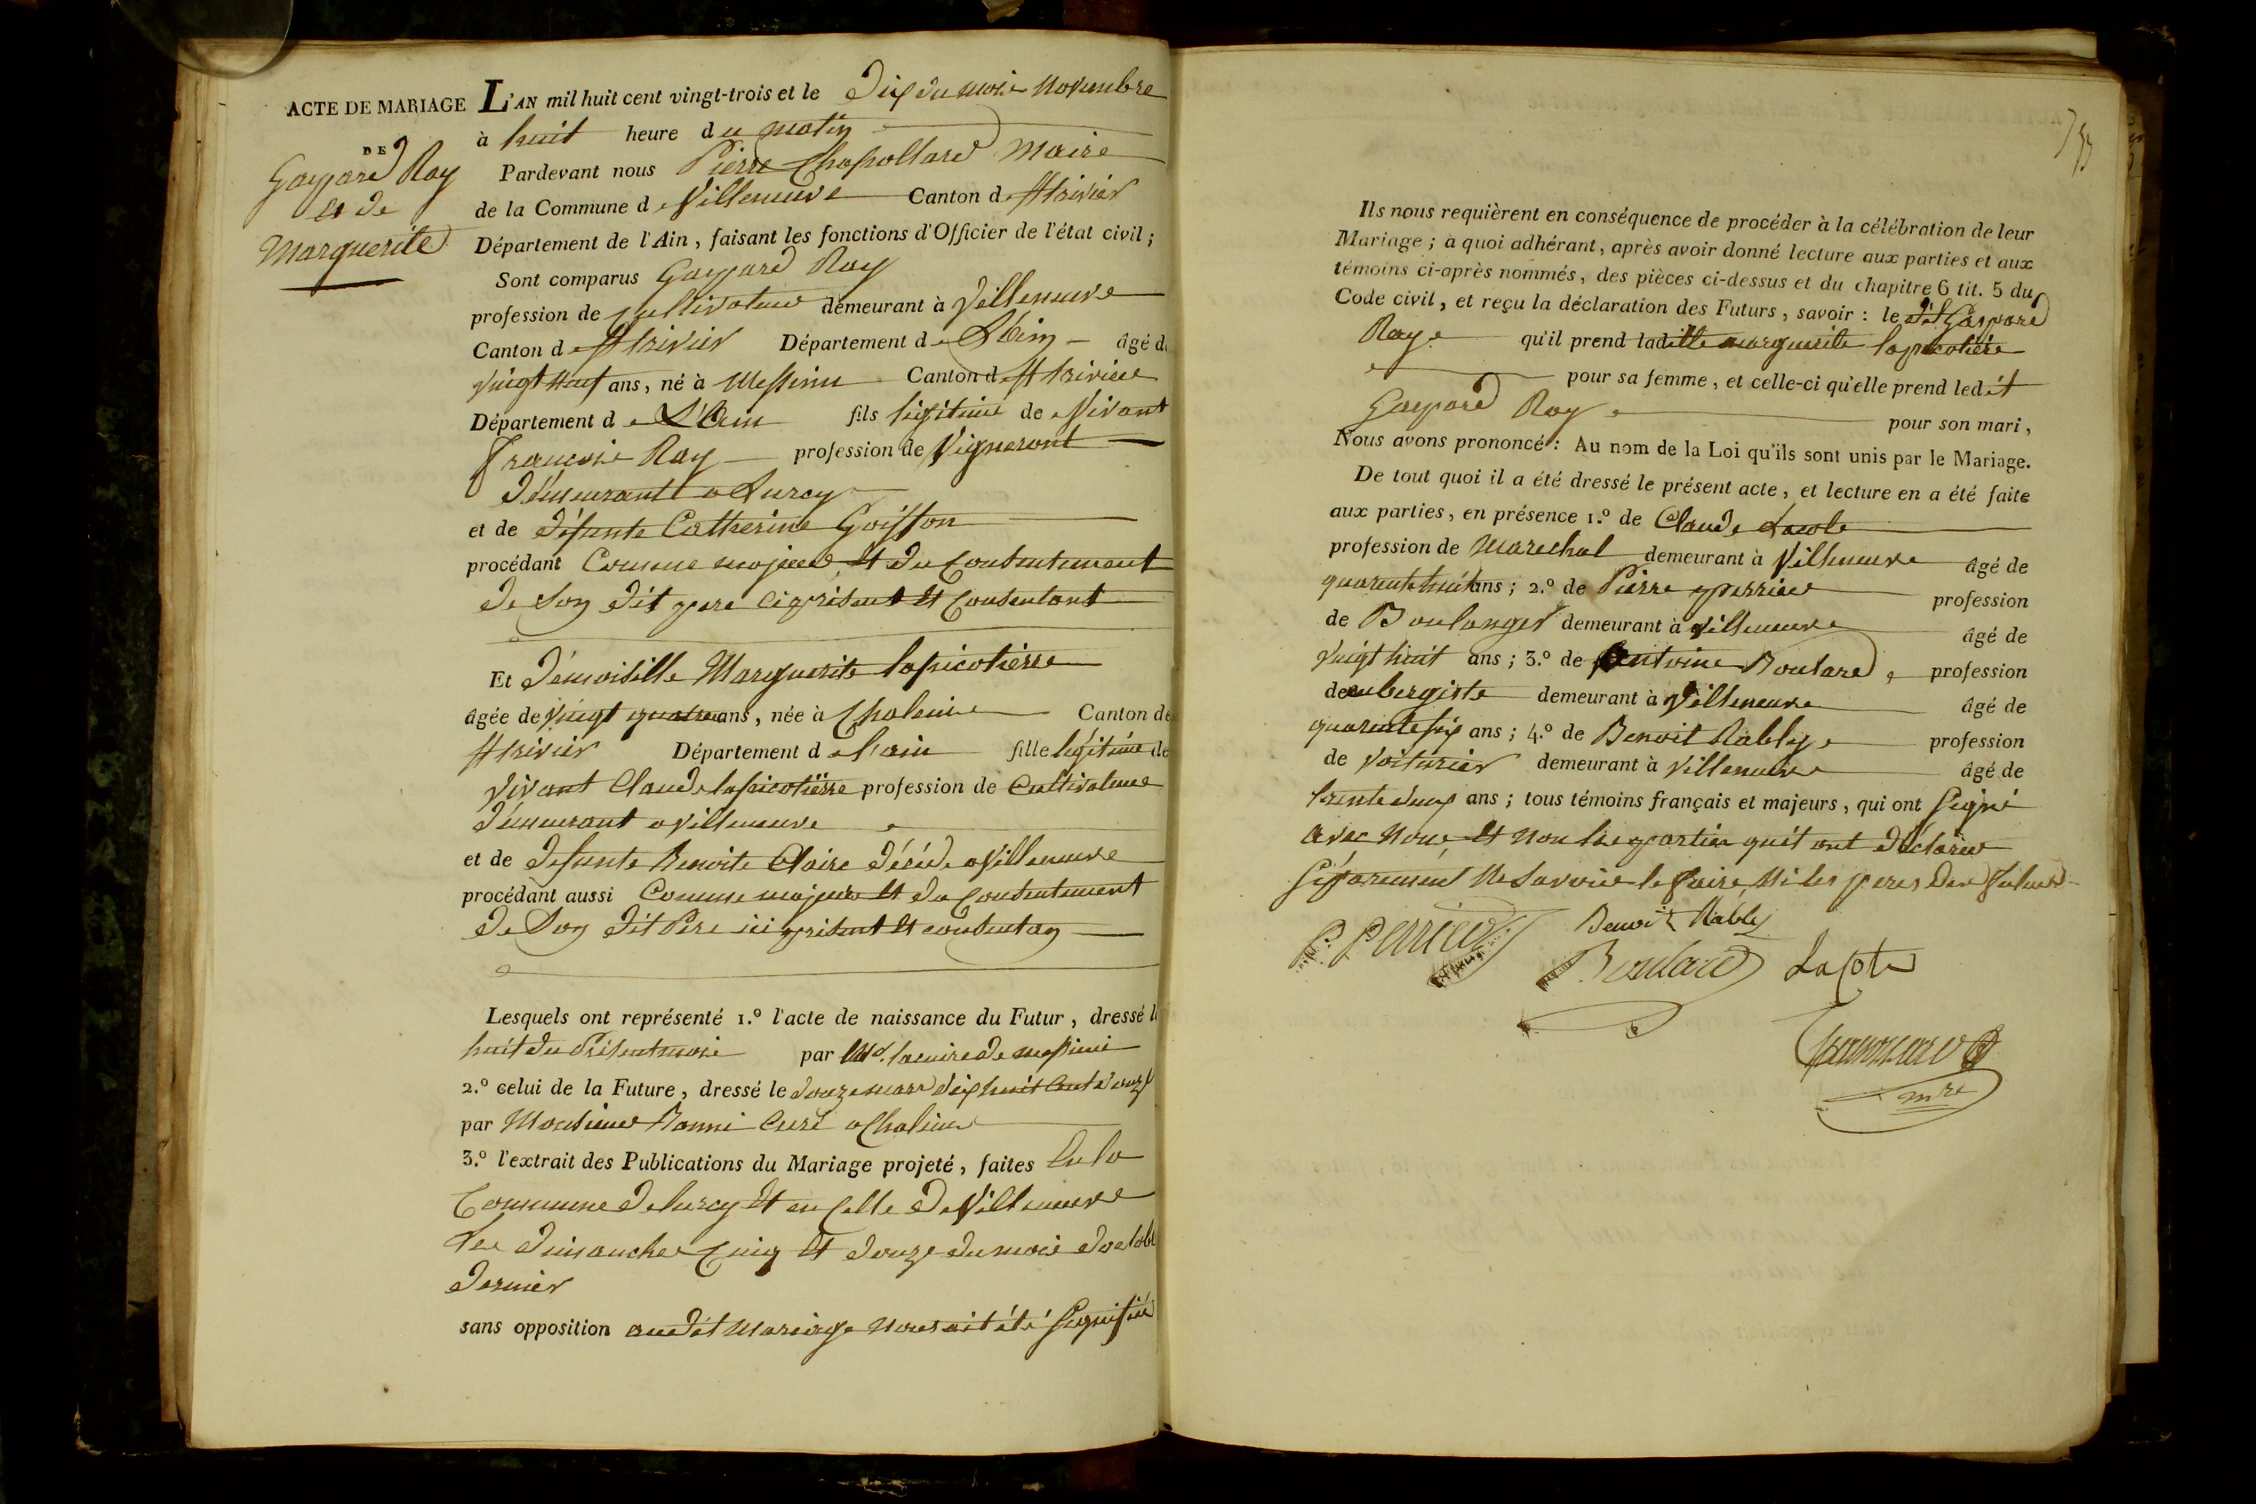 ACTE DE MARIAGE
DE
Gaspard Ray
et de
Marguerite
L'AN mil huit cent vingt-trois et le Dix du mois Novembre
à huit heure du matin
Pardevant nous Pierre Chapollard Maire
de la Commune de Villeneuve Canton de St trivier
Département de l'Ain, faisant les fonctions d'Officier de l'état civil;
Sont comparus Gaspard Ray
profession de cultivateur demeurant à Villeneuve
Canton de St trivier Département de L'ain âgé de
vingt neuf ans, né à Messimi Canton de St trivier
Département de L'Ain fils légitime de Vivant
francois Ray profession de Vigneront
Démeurant a Lurcy
et de défunte Catherine Goiffon
procédant Comme majeur et du Consentement
de Son dit pere ci présent et Consentant
Et Démoiselle Marguerite lapicotierre
âgée de vingt quatre ans, née à Chaleins Canton de
St trivier Département de l'ain fille légitime de
vivant Claude lapicotierre profession de Cultivateur
Démeurant a villeneuve
et de defunte Benoite Claire décédé a Villeneuve
procédant aussi Comme majeure et du Consentement
de Son dit Pere ici présent et consentan
Lesquels ont représenté 1.º l'acte de naissance du Futur, dressé le
huit du Présent mois par Mr. le maire de messimi
2.º celui de la Future, dressé le douze mars dix huit Cent
par Monsieur Curé a Chaleins
3.º l'extrait des Publications du Mariage projeté, faites en la
Commune de lurcy et en Celle de Villeneuve
les dimanches Cinq et douze du mois doctob
dernier
sans opposition audit Mariage nous ait été Signifiée
Ils nous requièrent en conséquence de procéder à la célébration de leur
Mariage; à quoi adhérant, après avoir donné lecture aux parties et aux
témoins ci-après nommés, des pièces ci-dessus et du chapitre 6 tit. 5 du
Code civil, et reçu la déclaration des Futurs, savoir: le dit Gaspard
Ray qu'il prend laditte marguerite lapicotière
pour sa femme, et celle-ci qu'elle prend ledit
Gaspard Ray pour son mari,
Nous avons prononcé: Au nom de la Loi qu'ils sont unis par le Mariage.
De tout quoi il a été dressé le présent acte, et lecture en a été faite
aux parties, en présence 1.º de Claude Lacote
profession de Marechal demeurant à Villeneuve âgé de
quarente huit ans; 2.º de Pierre perrier profession
de Boulanger demeurant à villeneuve âgé de
vingt huit ans; 3.º de Antoine Boulard profession
de aubergiste demeurant à Villeneuve âgé de
quarente six ans; 4.º de Benoit Rably profession
de voiturier demeurant à villeneuve âgé de
trente deux ans; tous témoins français et majeurs, qui ont Signé
avec Nous et non les parties quit ont déclarer
Séparément Ne Savoir le faire, Ni les peres des futurs
P. Perrier Benoit Rably
Boulard Lacote
mre